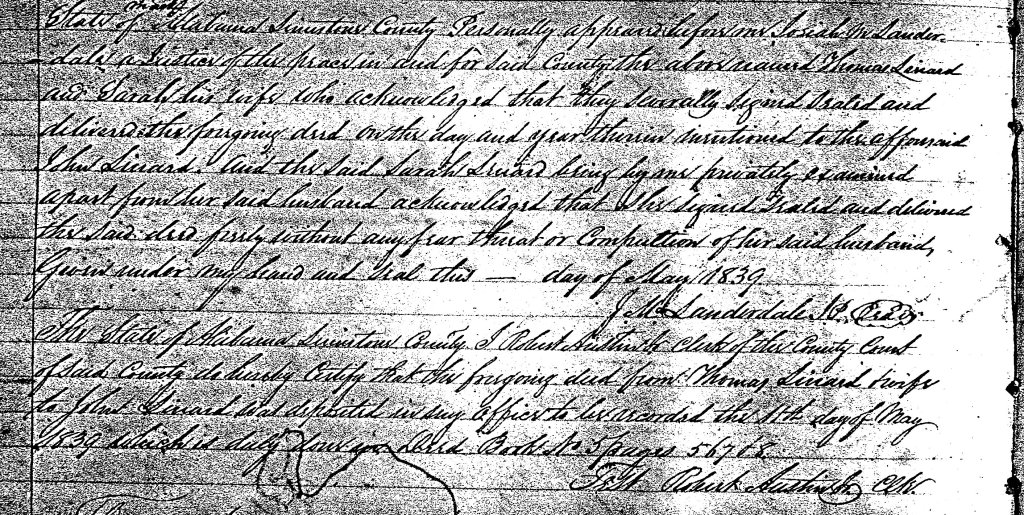 mark
State of Alabama Limestone County Personally appeared before me Josiah M Lander-
dale a Justice of the peace in and for said County the above named Thomas Linard
and Sarah his wife who acknowledged that they severally signed sealed and
delivered the foregoing deed on the day and year therein mentioned to the afforsaid
John Linard. And the said Sarah Linard being by me privately examined
apart from her said husband acknowledged that she signed sealed and delivered
the said deed freely without any fear threat or Compultion of her said husband,
Given under my hand and seal this — day of May 1839
J Mc Landerdale JP. Seal
The State of Alabama Limestone County I Robert Austin Jr Clerk of the County Court
of said County do hereby Certify that the foregoing deed from Thomas Linard & wife
to John Linard was deposited in my office to be recorded the 11th day of May
1839 which is duly done in Deed Book No 5 pages
Test Robert Austin Jr Clk.